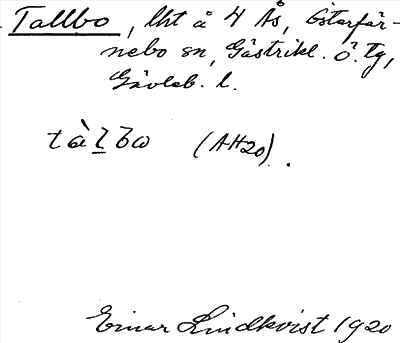 Tallbo, lht å 4 Ås, Österfär-
nebo sn, Gästrikl. ö. tg,
Gävleb. l.
tàl̲bω (AH20).
Einar Lindkvist 1920